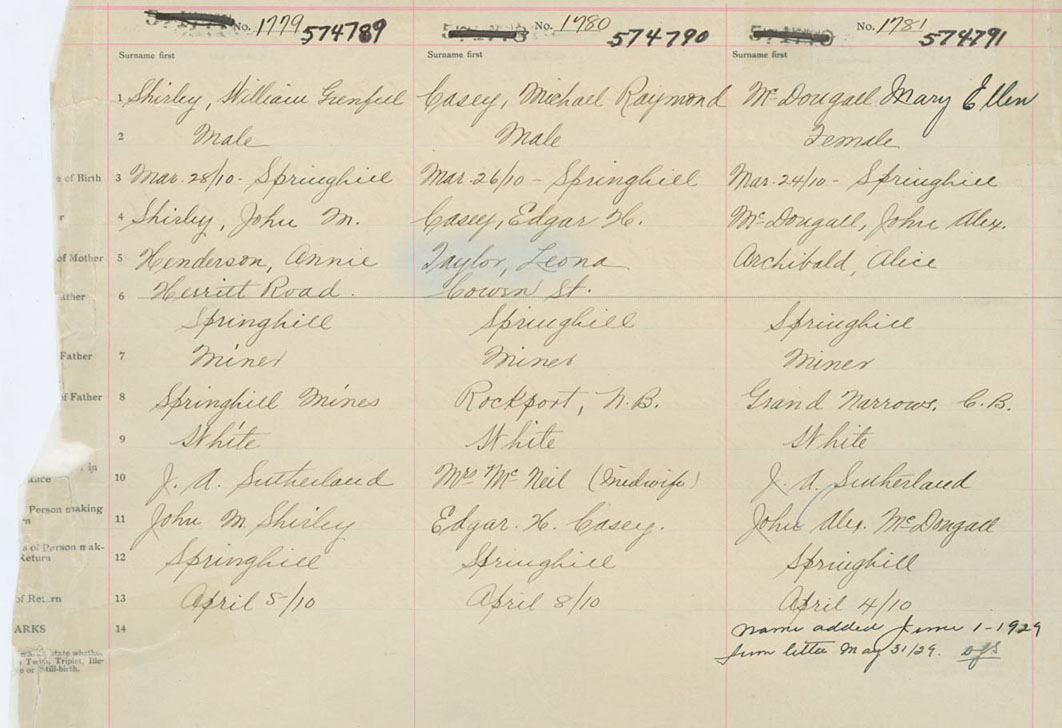 No. 1779 574789 No. 1780 574790 No. 1781 574791
Surname first Surname first Surname first
1 Shirley, William Grenfell Casey, Michael Raymond McDougall Mary Ellen
2 Male Male Female
e of Birth 3 Mar. 28/10 - Springhill Mar. 26/10 - Springhill Mar. 24/10 - Springhill
r 4 Shirley, John M. Casey, Edgar H. McDougall, John Alex.
of Mother 5 Henderson, Annie Taylor, Leona Archibald, Alice
ather 6 Herritt Road. Cowan St.
Springhill Springhill Springhill
Father 7 Miner Miner Miner
of Father 8 Springhill Mines Rockport, N.B. Grand Narrows, C.B.
9 White White White
in
ance 10 J. A. Sutherland Mrs McNeil (Midwife) J. A. Sutherland
Person making
n 11 John M Shirley Edgar. H. Casey. John Alex. McDougall
s of Person mak-
Return 12 Springhill Springhill Springhill
of Return 13 April 5/10 April 8/10 April 4/10
ARKS 14 Name added June 1-1929
state whether
, Twin, Triplet, Ille-
e or Still-birth. from letter May 31/29.